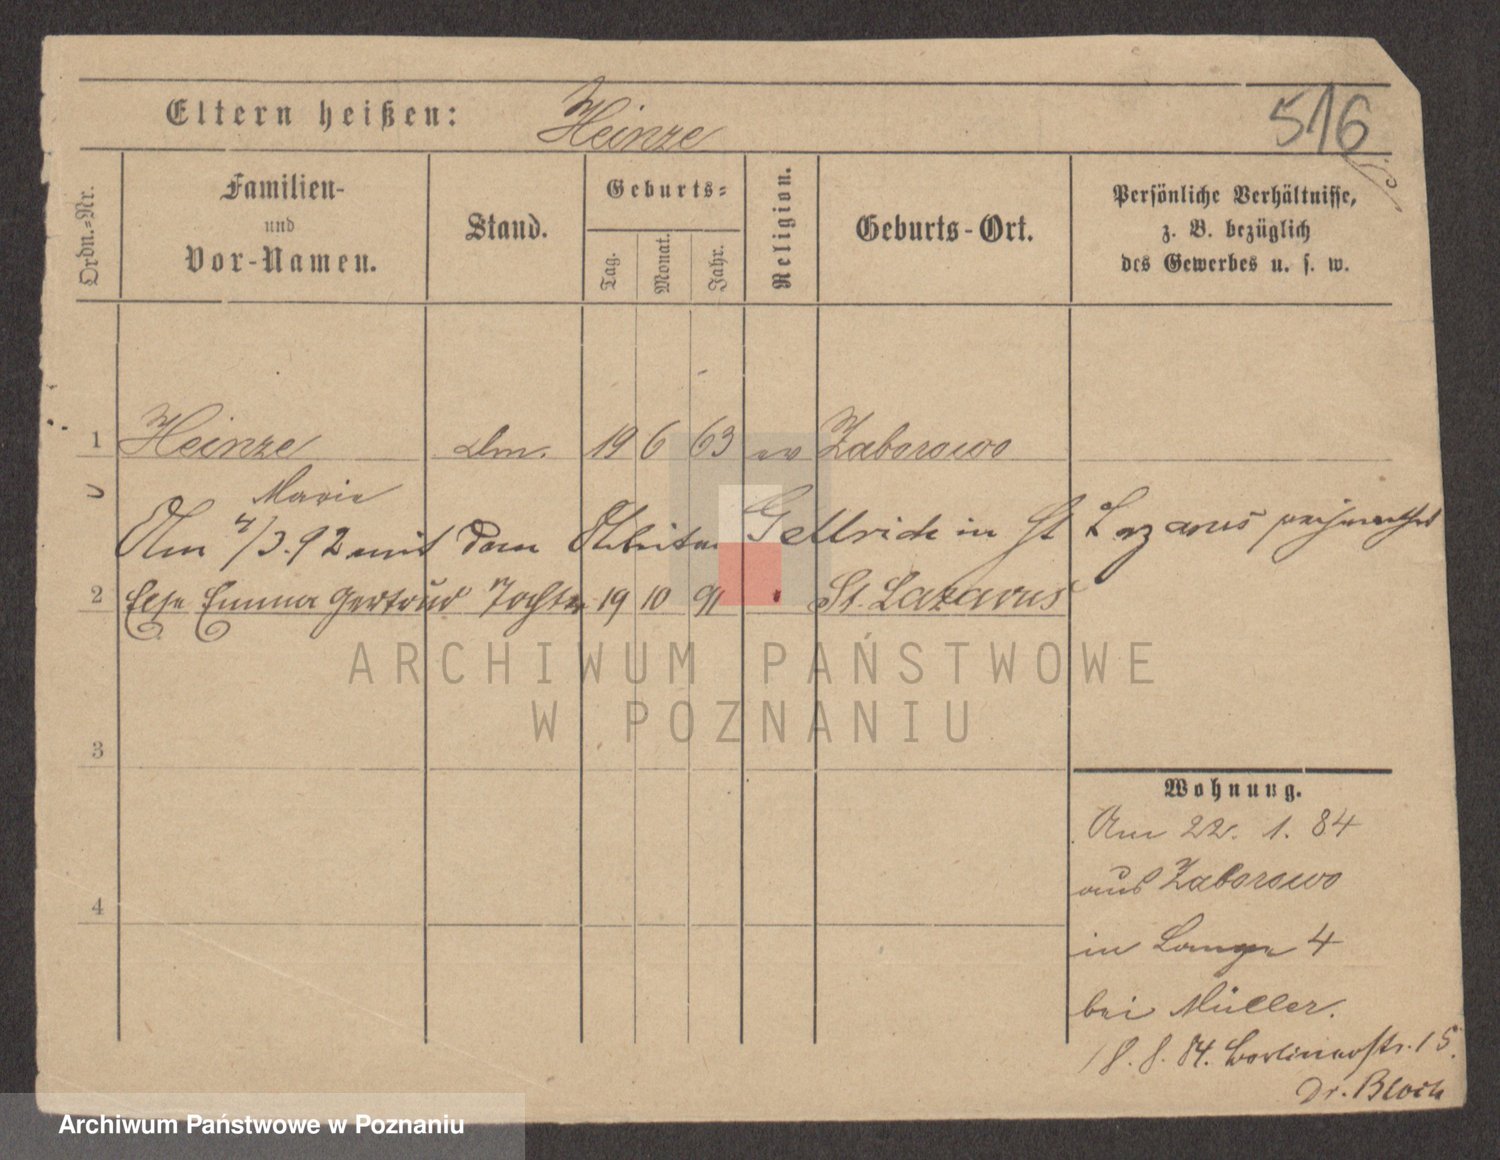 Eltern heißen: Heinze
516
Ordn.-Nr.
Familien-
und
Vor-Namen.
Stand.
Geburts-
Tag.
Monat.
Jahr.
Religion.
Geburts-Ort.
Persönliche Verhältnisse,
z. B. bezüglich
des Gewerbes u. s. w.
1 Heinze 19 6 63 ev Zaborowo
Marie
Am 4/3.92 mit dem Arbeiter Gellrich in St Lazarus verheirathet
2 Else Emma Gertrud Tochter 19 10 91 St. Lazarus
ARCHIWUM PAŃSTWOWE
W POZNANIU
3
4
Wohnung.
Am 22. 1. 84
aus Zaborowo
in Lange 4
bei Müller.
18. 8. 84. Berlinerstr. 15.
Dr. Bloch
Archiwum Państwowe w Poznaniu